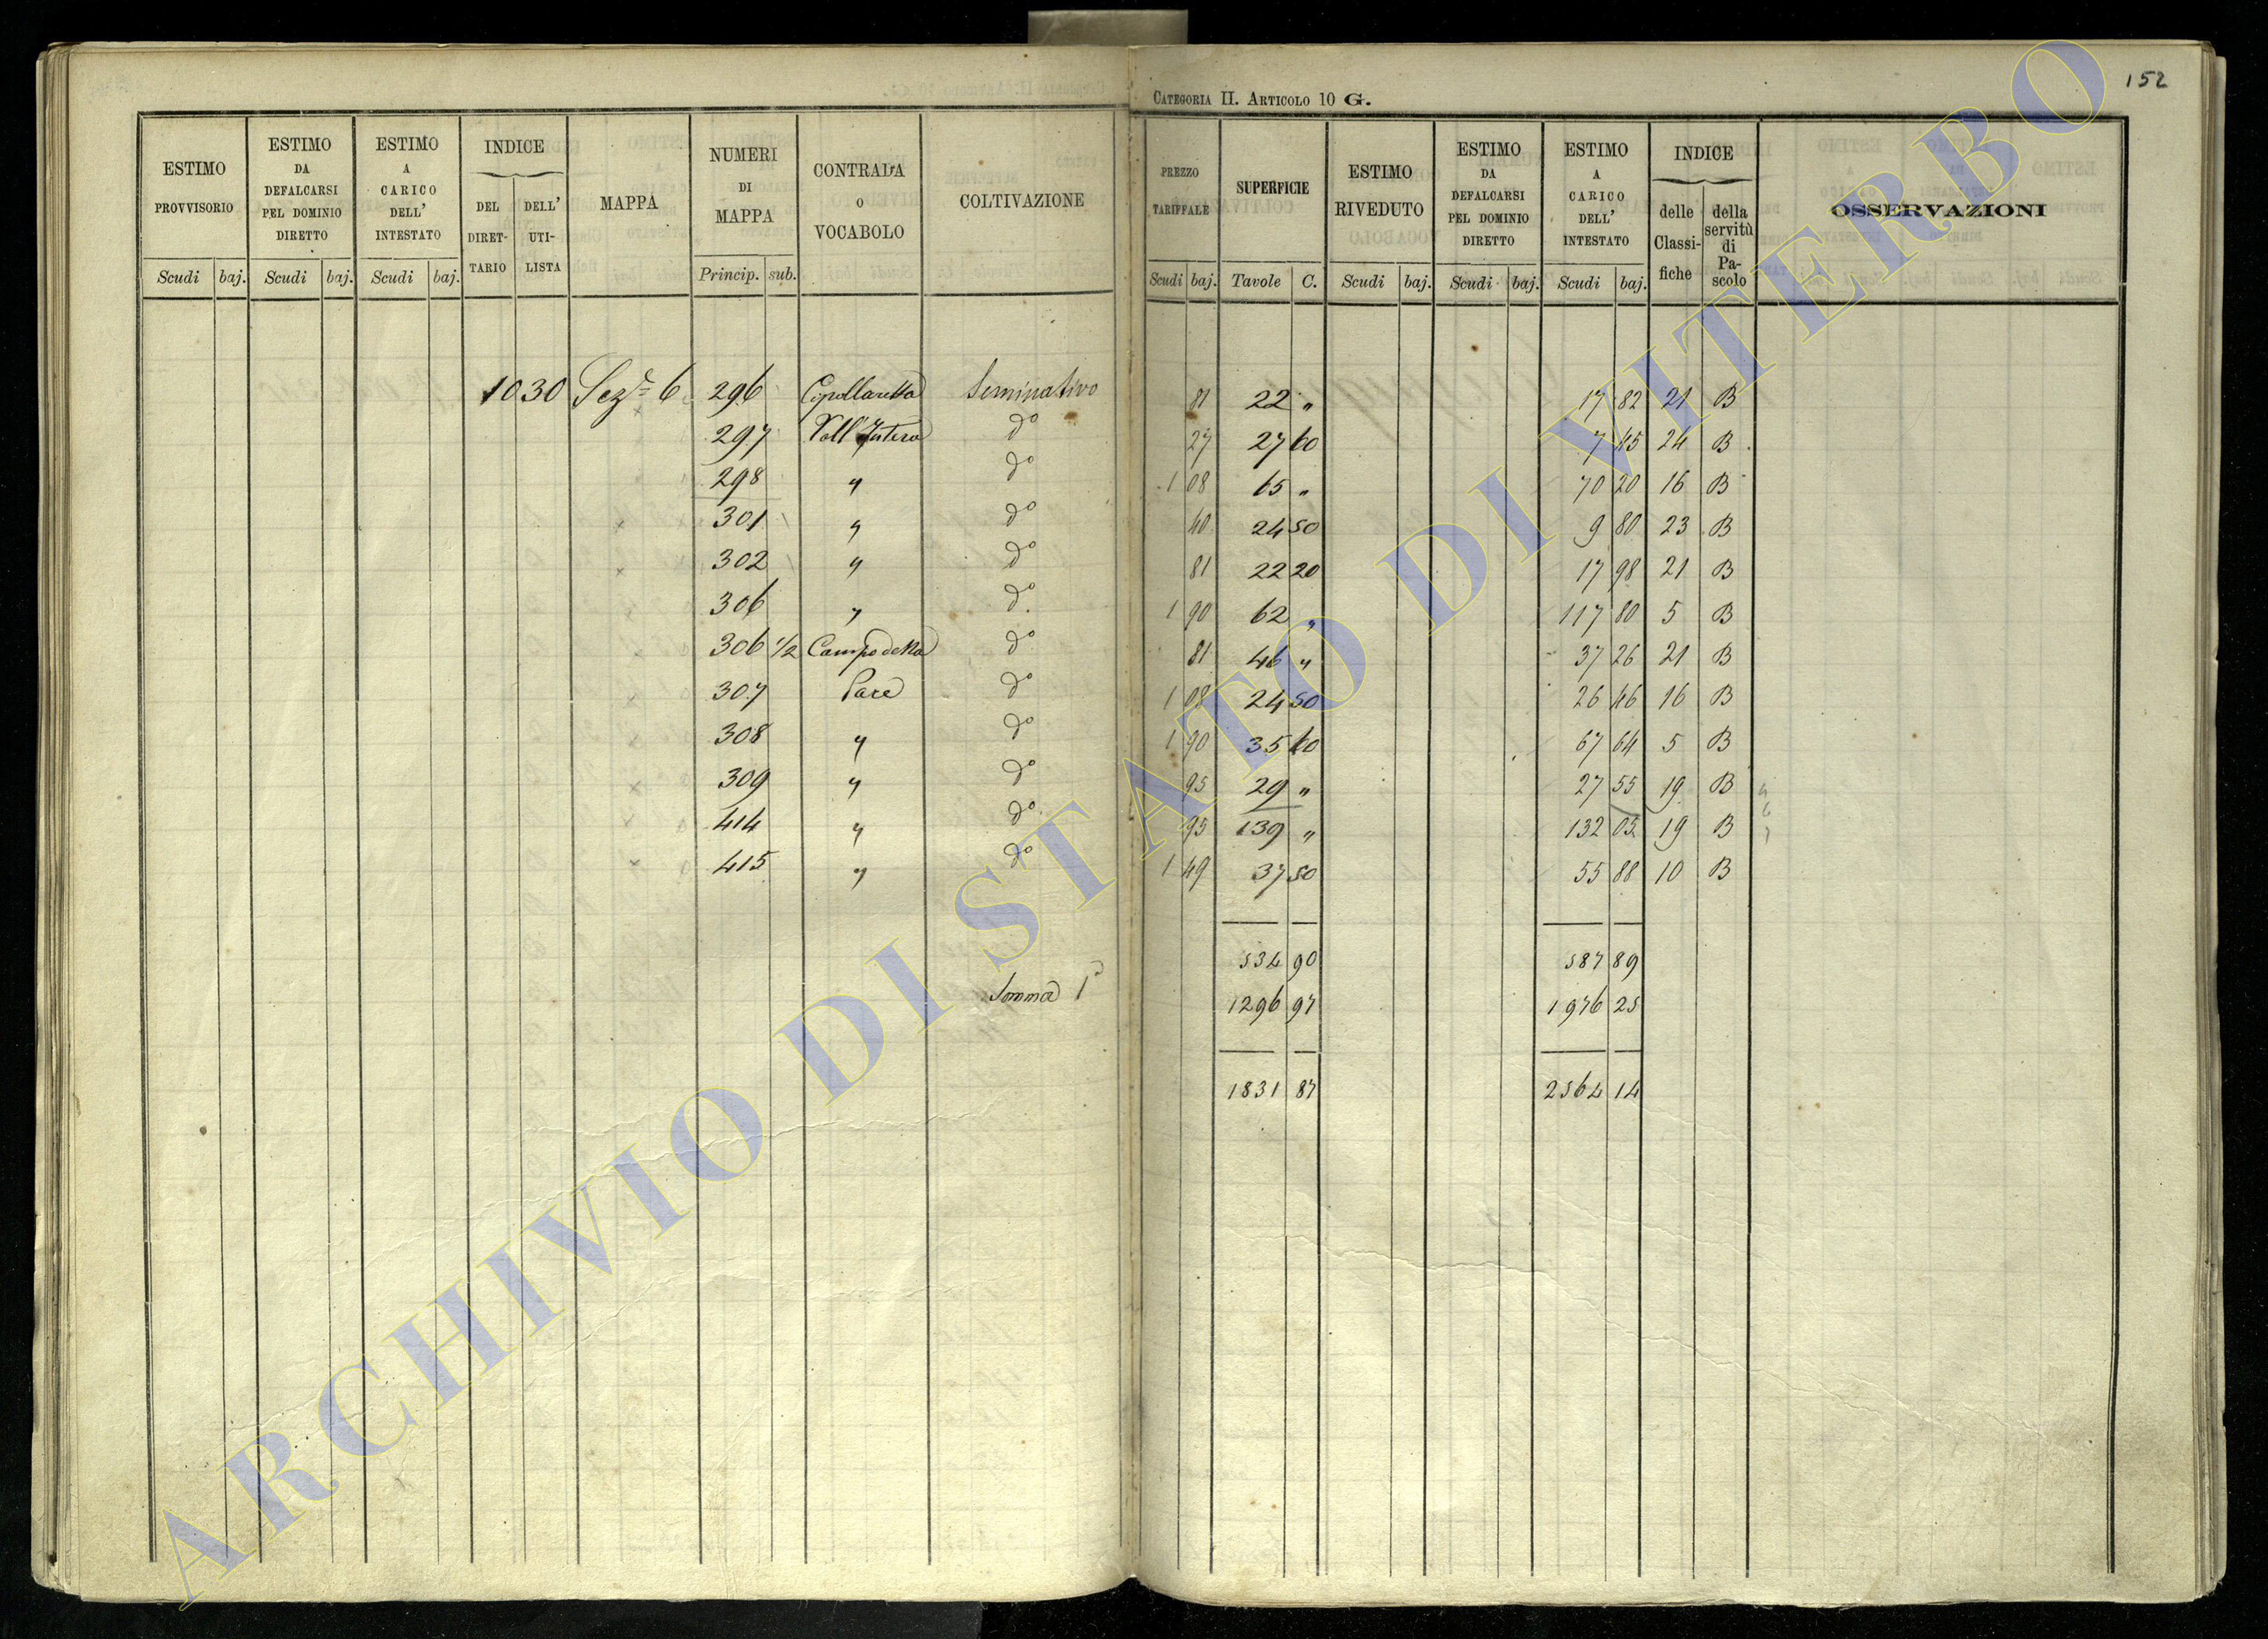 152
CATEGORIA II. ARTICOLO 10 G.
ESTIMO PROVVISORIO Scudi baj.
ESTIMO DA DEFALCARSI PEL DOMINIO DIRETTO Scudi baj.
ESTIMO A CARICO DELL' INTESTATO Scudi baj.
INDICE DEL DIRET-TARIO DELL' UTI-LISTA
MAPPA
NUMERI DI MAPPA Princip. sub.
CONTRADA O VOCABOLO
COLTIVAZIONE
PREZZO TARIFFALE Scudi baj.
SUPERFICIE Tavole C.
ESTIMO RIVEDUTO Scudi baj.
ESTIMO DA DEFALCARSI PEL DOMINIO DIRETTO Scudi baj.
ESTIMO A CARICO DELL' INTESTATO Scudi baj.
INDICE delle Classi-fiche della servitù di Pa-scolo
OSSERVAZIONI
1030 Sez.e 6 296 Cipollaretta Seminativo 81 22 " 17 82 21 B
297 do 27 27 60 7 45 24 B
298 " do 1 08 65 " 70 20 16 B
301 " do 40 24 50 9 80 23 B
302 " do 81 22 20 17 98 21 B
306 " do 1 90 62 " 117 80 5 B
306 1/2 Campo della do 81 46 " 37 26 21 B
307 Pace do 1 08 24 50 26 46 16 B
308 " do 1 90 35 60 67 64 5 B
309 " do 95 29 " 27 55 19 B
414 " do 95 139 " 132 05 19 B
415 " do 1 49 37 50 55 88 10 B
534 90 587 89
Somma 1a 1296 97 1976 25
1831 87 2564 14
ARCHIVIO DI STATO DI VITERBO